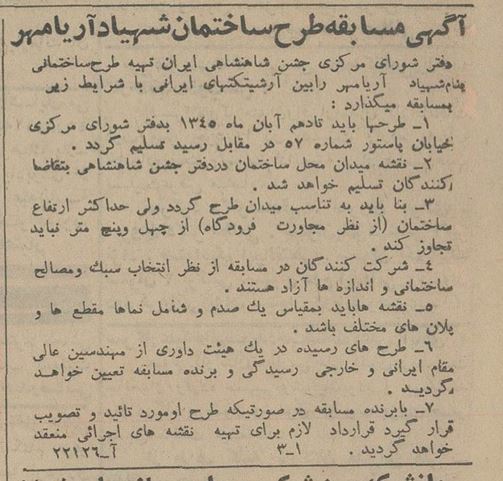 آگهی مسابقه طرح ساختمان شهیاد آریامهر
دفتر شورای مرکزی جشن شاهنشاهی ایران تهیه طرح ساختمانی
بنام شهیاد آریامهر رابین آرشیتکتهای ایرانی با شرایط زیر
بمسابقه میگذارد :
۱ـ طرحها باید تادهم آبان ماه ۱۳۴۵ بدفتر شورای مرکزی
خیابان پاستور شماره ۵۷ در مقابل رسید تسلیم گردد .
۲ـ نقشه میدان محل ساختمان دردفتر جشن شاهنشاهی بتقاضا
کنندگان تسلیم خواهد شد .
۳ـ بنا باید به تناسب میدان طرح گردد ولی حداکثر ارتفاع
ساختمان (از نظر مجاورت فرودگاه) از چهل وپنج متر نباید
تجاوز کند .
۴ـ شرکت کنندگان در مسابقه از نظر انتخاب سبك ومصالح
ساختمانی و اندازه ها آزاد هستند .
۵ـ نقشه هاباید بمقیاس یك صدم و شامل نماها مقطع ها و
پلان های مختلف باشد .
۶ـ طرح های رسیده در یك هیئت داوری از مهندسین عالی
مقام ایرانی و خارجی رسیدگی و برنده مسابقه تعیین خواهد
گردید .
۷ـ بابرنده مسابقه در صورتیکه طرح اومورد تائید و تصویب
قرار گیرد قرارداد لازم برای تهیه نقشه های اجرائی منعقد
خواهد گردید . ۱ـ۳ آـ۲۲۱۲۶